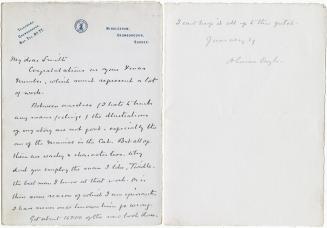 TELEGRAMS,
CROWBOROUGH.
WINDLESHAM,
CROWBOROUGH,
SUSSEX.
My dear Smith
Congratulations on your Xmas
Number, which must represent a lot
of work.
Between ourselves (I hate to hurt
any mans feelings) the illustrations
of my story are not good, especially the
one of the Mummies in the Cab. But all of
them are weak & characterless. Why
dont you employ the man I like, Twidle,
the best man I know at that work. Or is
there some reason of which I am ignorant.
I have never known him go wrong.
Got about of the new book done.
I can't keep it all up to this pitch.
Yours
A Conan Doyle.